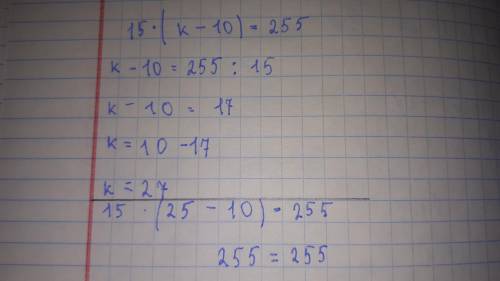 15·(к-10)=255
к-10=255:15
к-10=17
к=10-17
к=27
15·(25-10)=255
255=255